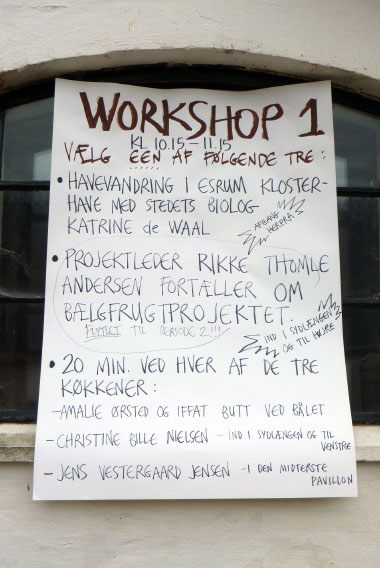 WORKSHOP 1
KL 10.15 – 11.15
VÆLG ÉEN AF FØLGENDE TRE:
• HAVEVANDRING I ESRUM KLOSTER-
HAVE MED STEDETS BIOLOG
KATRINE de WAAL
AFGANG
HERFRA
• PROJEKTLEDER RIKKE THOMLE
ANDERSEN FORTÆLLER OM
BÆLGFRUGTPROJEKTET.
FLYTTET TIL PERIODE 2!!!
IND I SYDLÆNGEN
OG TIL HØJRE
• 20 MIN. VED HVER AF DE TRE
KØKKENER:
– AMALIE ØRSTED OG IFFAT BUTT VED BÅLET
– CHRISTINE BILLE NIELSEN – IND I SYDLÆNGEN OG TIL
VENSTRE
– JENS VESTERGAARD JENSEN – I DEN MIDTERSTE
PAVILLON